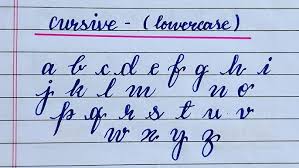 cursive - (lowercase)
a b c d e f g h i
j k l m n o
p q r s t u v
w x y z